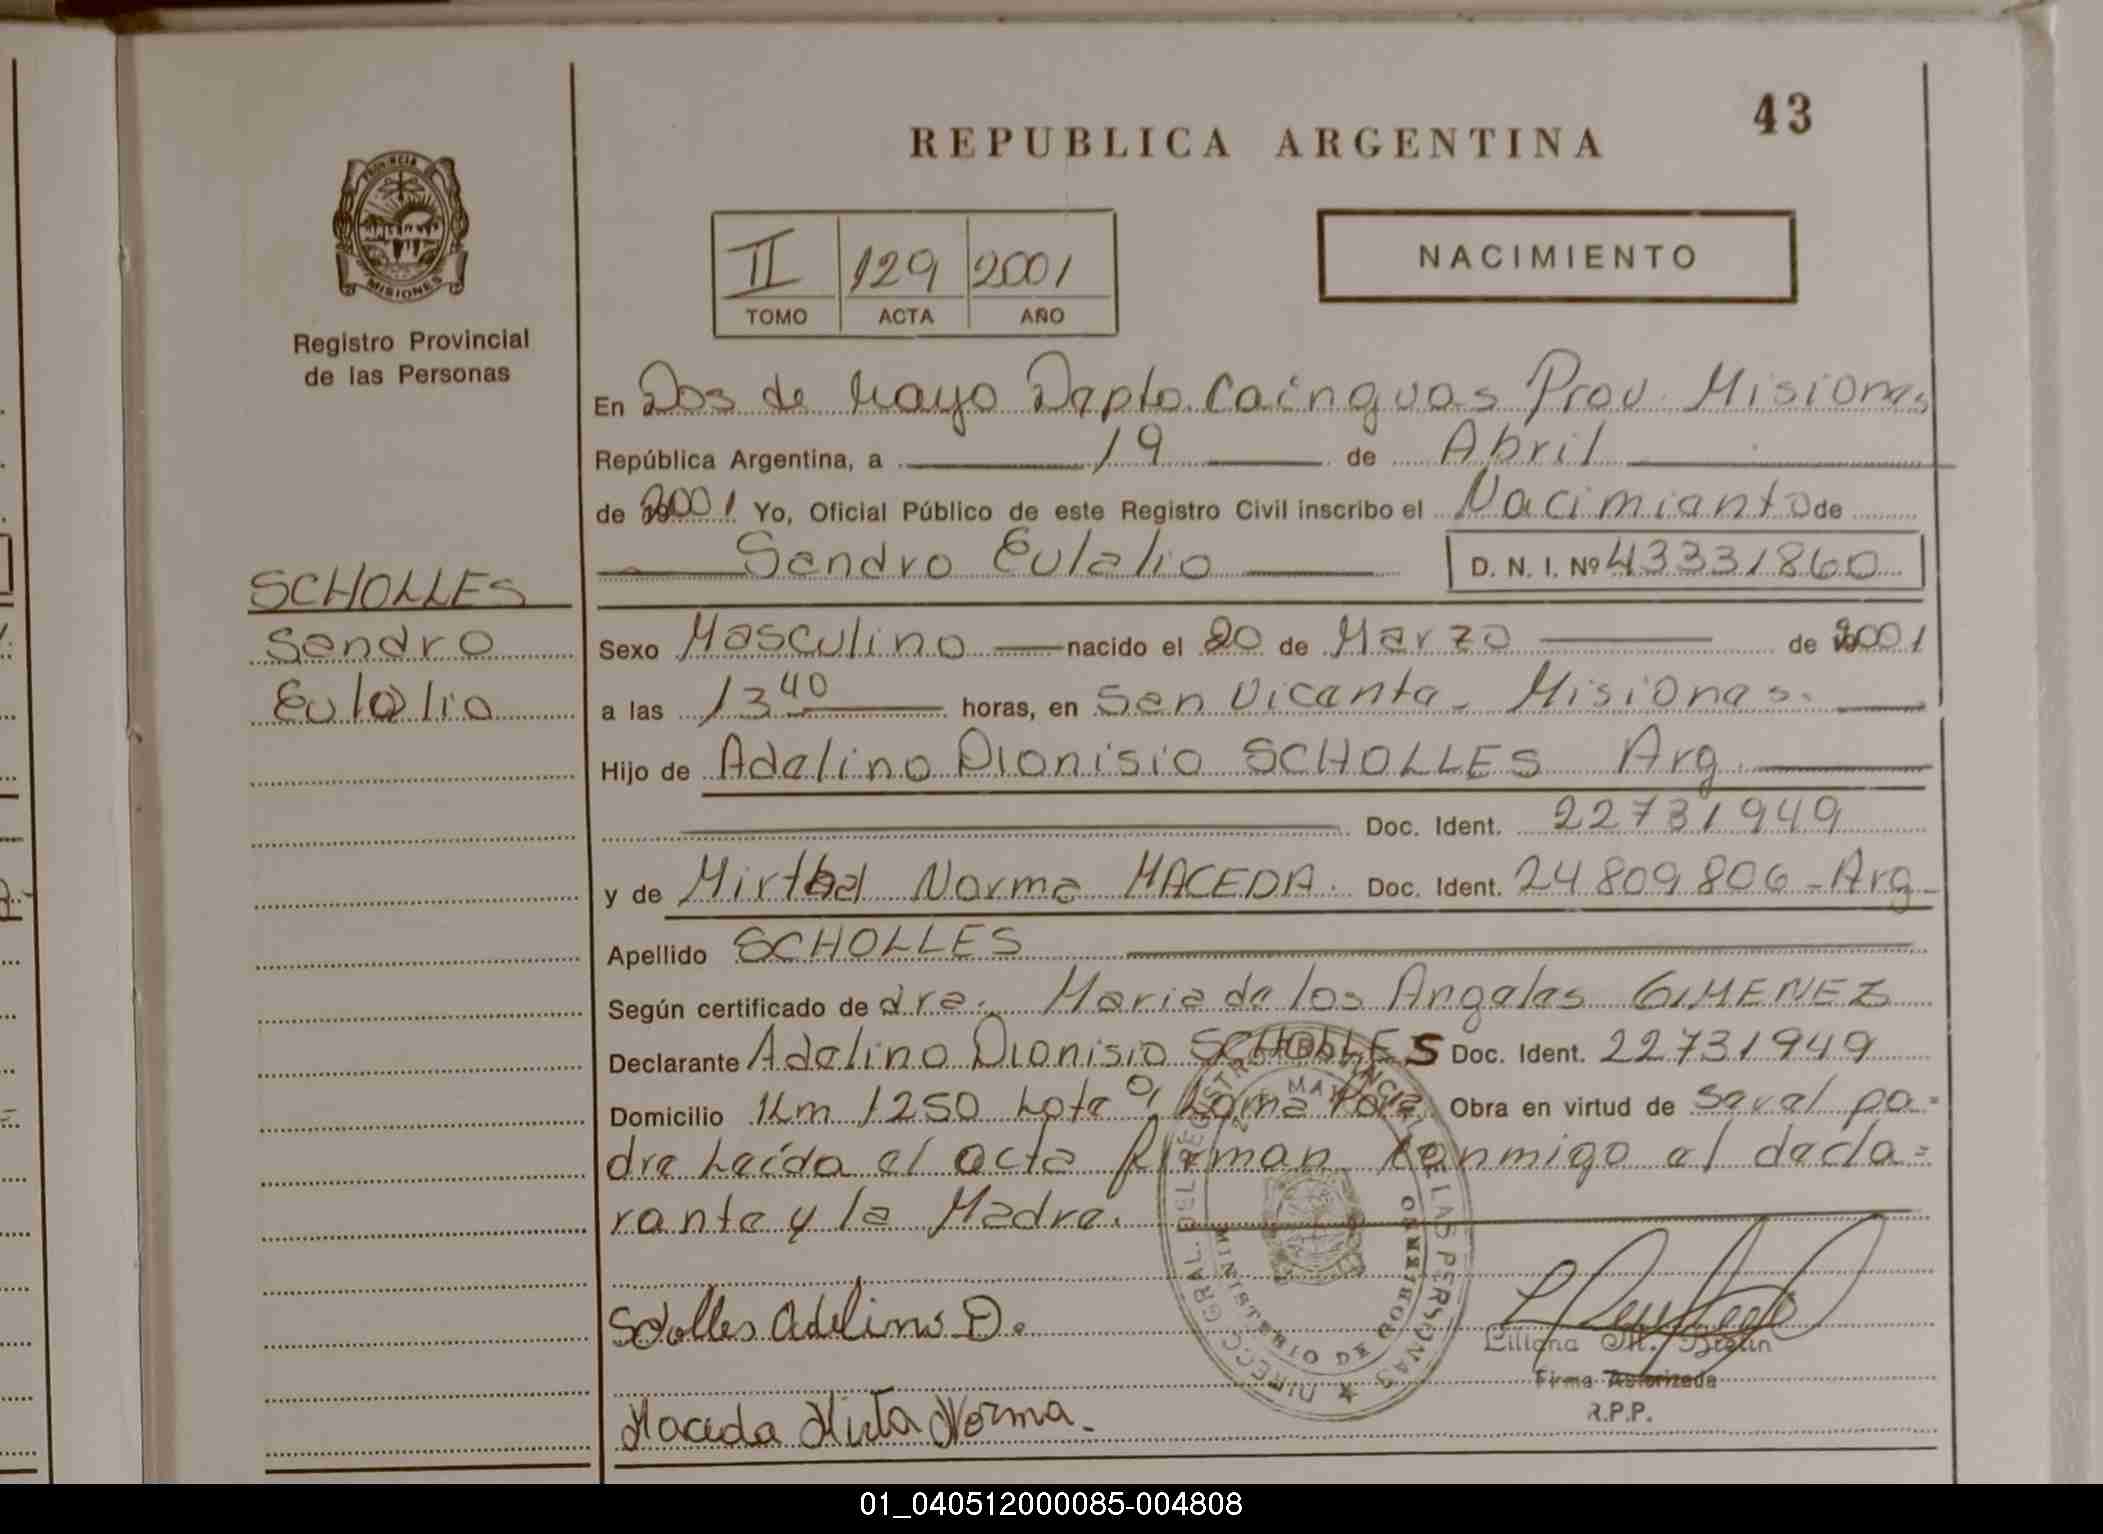 43
REPUBLICA ARGENTINA
PROVINCIA DE
MISIONES
Registro Provincial
de las Personas
II 129 2001
TOMO ACTA AÑO
NACIMIENTO
En Dos de Mayo Depto. Cainguas Prov. Misiones
República Argentina, a 19 de Abril
de 2001 Yo, Oficial Público de este Registro Civil inscribo el Nacimiento de
Sandro Eulalio D. N. I. Nº 43331860
SCHOLLES
Sandro
Eulalio
Sexo Masculino nacido el 20 de Marzo de 2001
a las 13 40 horas, en San Vicente - Misiones.
Hijo de Adelino Dionisio SCHOLLES Arg.
Doc. Ident. 22731949
y de Mirtha Norma MACEDA. Doc. Ident. 24809806 - Arg -
Apellido SCHOLLES
Según certificado de dra. Maria de los Angeles GIMENEZ
Declarante Adelino Dionisio SCHOLLES Doc. Ident. 22731949
Domicilio Km 1250 Lote 9, Loma Porá. Obra en virtud de ser el pa-
dre Leída el acta firman conmigo el decla=
rante y la Madre.
Scholles Adelino D.
Liliana M.
Firma Autorizada
R.P.P.
Maceda Mirta Norma.-
DIRECC. GRAL. DEL REGISTRO PROVINCIAL DE LAS PERSONAS
MINISTERIO DE GOBIERNO
01_040512000085-004808